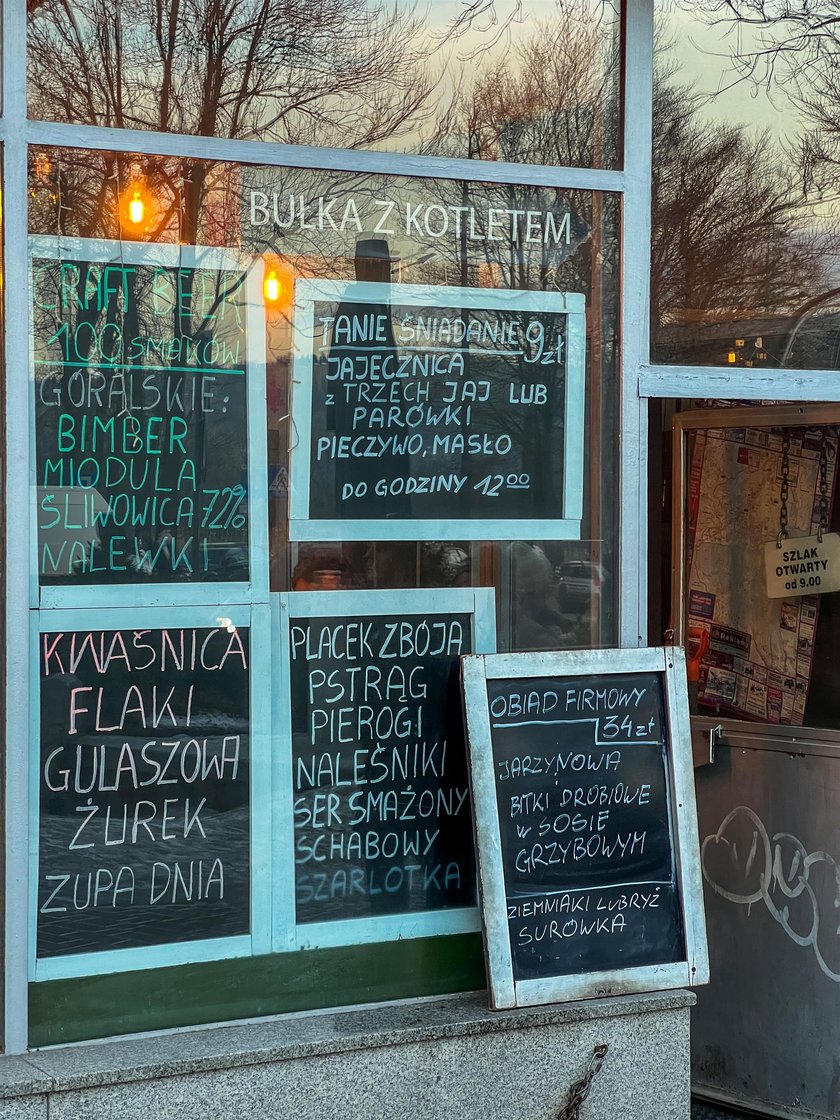 BUŁKA Z KOTLETEM
CRAFT BEER
100 SMAKÓW
GÓRALSKIE:
BIMBER
MIODULA
ŚLIWOWICA 72%
NALEWKI
TANIE ŚNIADANIE 9zł
JAJECZNICA
z TRZECH JAJ LUB
PARÓWKI
PIECZYWO, MASŁO
DO GODZINY 12⁰⁰
KWAŚNICA
FLAKI
GULASZOWA
ŻUREK
ZUPA DNIA
PLACEK ZBÓJA
PSTRĄG
PIEROGI
NALEŚNIKI
SER SMAŻONY
SCHABOWY
SZARLOTKA
OBIAD FIRMOWY
34zł
JARZYNOWA
BITKI DROBIOWE
w SOSIE
GRZYBOWYM
ZIEMNIAKI LUB RYŻ
SURÓWKA
SZLAK
OTWARTY
od 9.00